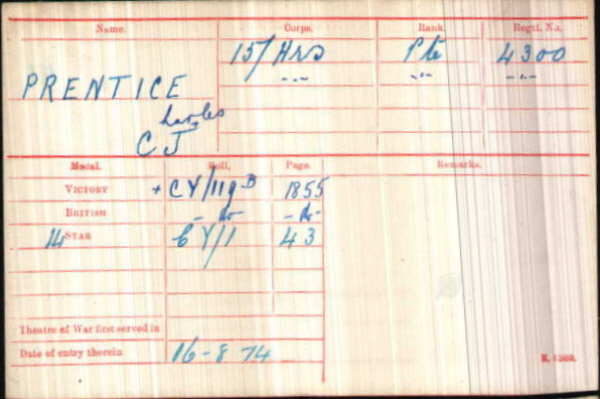 Name. Corps. Rank. Regtl. No.
15/Hrs Pte 4300
PRENTICE -"- -"- -"-
harles
C J
Medal. Roll. Page. Remarks.
VICTORY + CY/119B 1855
BRITISH - do - - do -
14 STAR CY/1 43
Theatre of War first served in
Date of entry therein 16-8-14